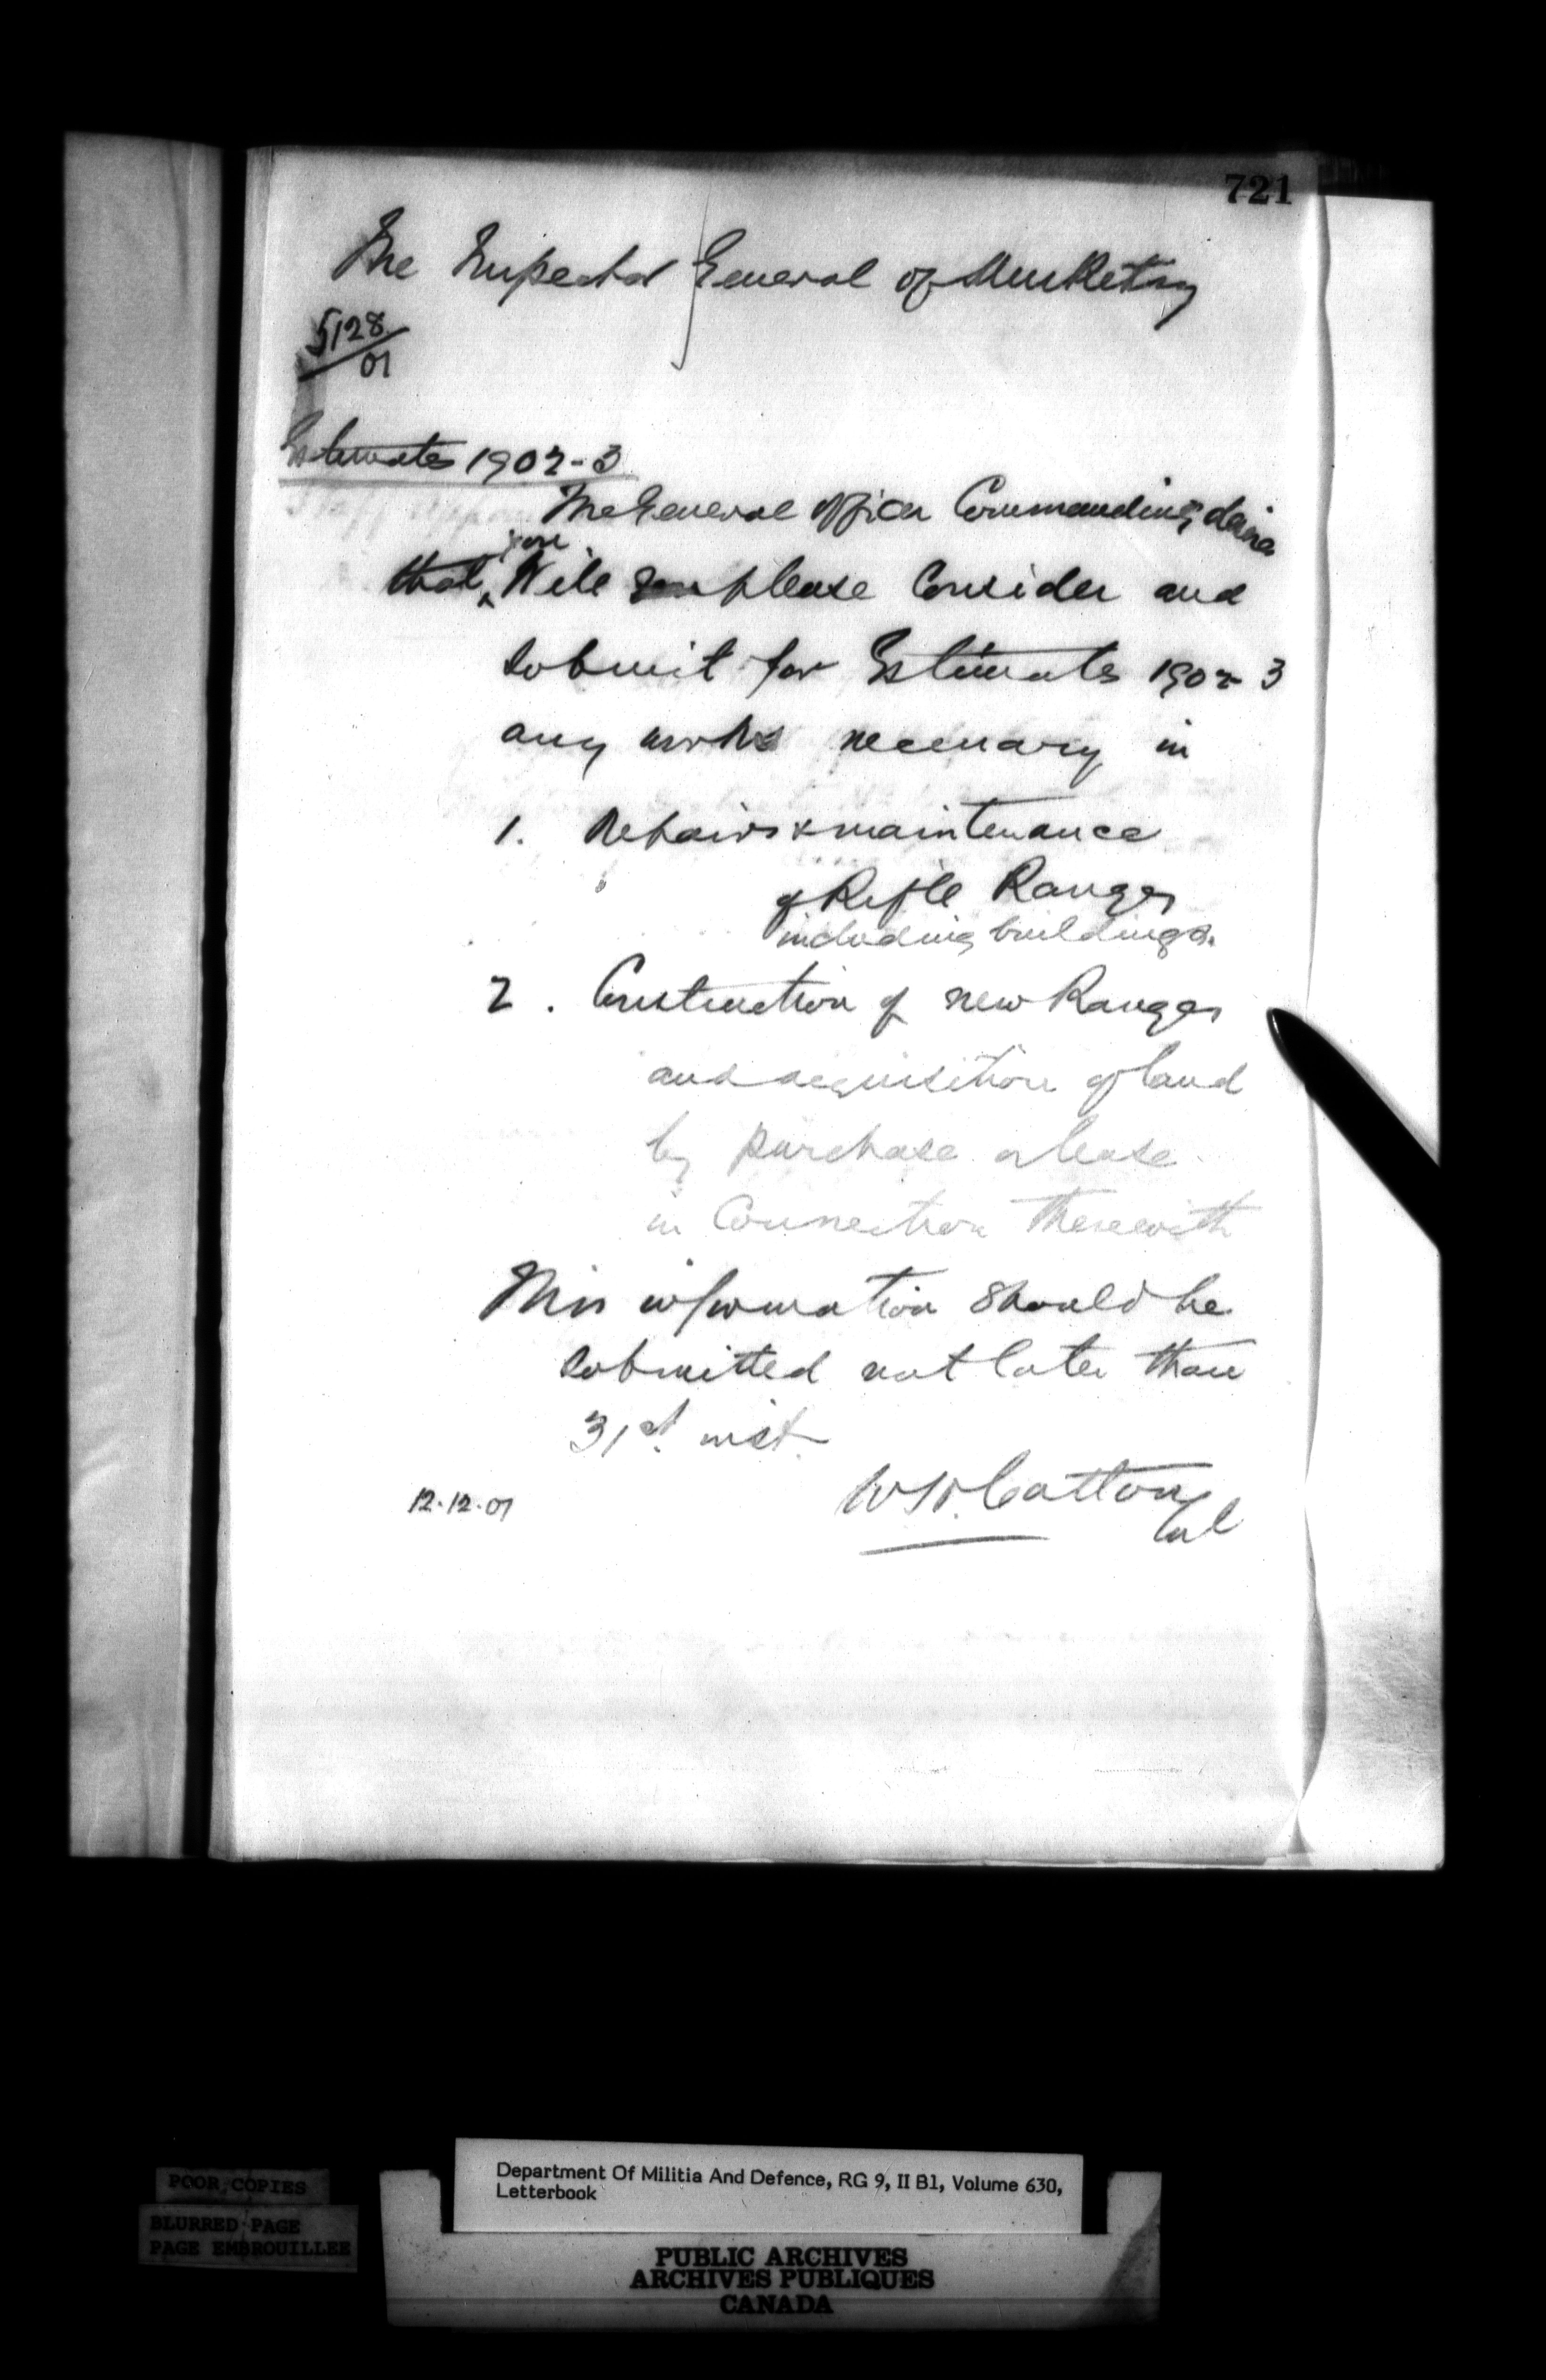 721
The Inspector General of Musketry
5128/01
Estimates 1902-3
The General Officer Commanding desires
you
that Will you please Consider and
submit for Estimates 1902-3
any works necessary in
1. Repairs & maintenance
of Rifle Ranges
including buildings.
2. Construction of new Ranges
and acquisition of land
by purchase or lease
in Connection therewith
This information should be
submitted not later than
31st. inst.
12.12.01
Col
Department Of Militia And Defence, RG 9, II B1, Volume 630,
Letterbook
POOR COPIES
BLURRED PAGE
PAGE EMBROUILLEE
PUBLIC ARCHIVES
ARCHIVES PUBLIQUES
CANADA